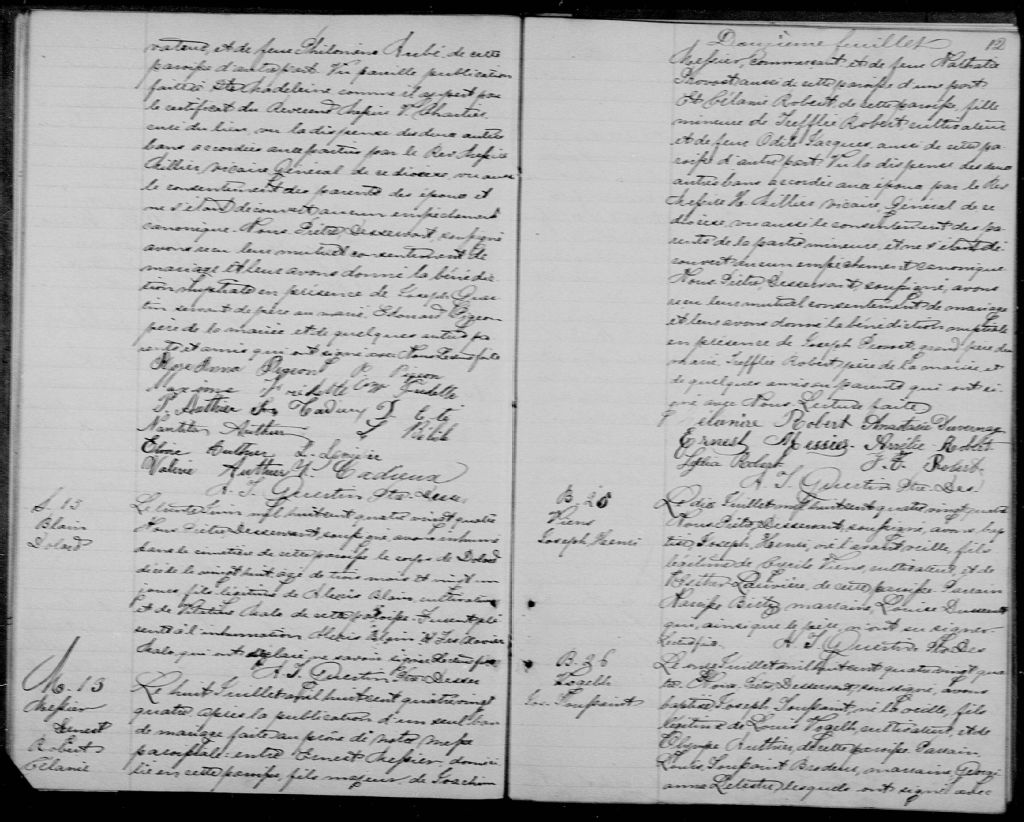 vateur, et de feue Philomène Aubé de cette
paroisse d'autre part. Vu pareille publication
faite à Ste Madeleine comme il appert par
le certificat du Révérend Messire V. Chartier
curé du lieu, vu la dispense des deux autres
bans accordée aux parties par le Rev Messire
vicaire Général de ce diocèse, vu aussi
le consentement des parents des époux et
ne s'étant découvert aucun empêchement
canonique. Nous Prêtre Desservant soussigné
avons reçu leur mutuel consentement de
mariage et leur avons donné la bénédic
tion nuptiale en présence de Joseph
servant de père au marié, Edouard Pigeon
père de la mariée et de quelques autres pa
rents et amis qui ont signé avec Nous Lecture faite
Rose Anna Pigeon P. Pigeon
P. Authier
Authier
Authier L.
Valérie Authier Cadieux
A. T. Quertin Ptre Dess
S. 13
Blain
Dolard
Le trente Juin mil huit cent quatre vingt quatre
Nous Prêtre Desservant soussigné avons inhumé
dans le cimetière de cette paroisse le corps de Dolard
décédé le vingt huit, âgé de trois mois et vingt un
jours, fils légitime de Alexis Blain, cultivateur
et de de cette paroisse. Furent pré
sents à l'inhumation Alexis Blain et Frs Xavier
qui ont déclaré ne savoir signer Lecture faite
A. T. Quertin Ptre Desser
M. 13
Messier
Ernest
Robert
Célanie
Le huit Juillet mil huit cent quatre vingt
quatre, après la publication d'un seul ban
de mariage faite au prône de notre messe
paroissiale entre Ernest Messier, domici
lié en cette paroisse, fils majeur de Joachim
Douzième feuillet 12
Messier, commerçant et de feue Nathalie
Provost aussi de cette paroisse d'une part
Et Célanie Robert de cette paroisse, fille
mineure de Trefflé Robert cultivateur
et de feue Odile Jacques, aussi de cette pa
roisse d'autre part. Vu la dispense des deux
autres bans accordée aux époux par le Rev
Messire vicaire Général de ce
diocèse, vu aussi le consentement des pa
rents de la partie mineure, et ne s'étant dé
couvert aucun empêchement canonique
Nous Prêtre, Desservant soussigné, avons
reçu leur mutuel consentement de mariage
et leur avons donné la bénédiction nuptiale
en présence de Joseph Provost, grand père du
marié, Trefflé Robert, père de la mariée et
de quelques amis ou parents qui ont si
gné avec Nous. Lecture faite
Célanire Robert Anastasie Duvernay
Ernest Messier Amélie Robert
Lydia Robert J. O. Robert
A. T. Quertin Ptre Des
B. 25
Viens
Joseph, Henri
Le dix Juillet mil huit cent quatre vingt quatre
Nous Prêtre Desservant, soussigné, avons bap
tisé, Joseph, Henri, né l'avant veille, fils
légitime de Viens, cultivateur, et de
Larivière, de cette paroisse. Parrain
Narcisse marraine Louise
qui, ainsi que le père, n'ont su signer
Lecture faite A. T. Quertin Ptre Des
B. 26
Vogelh
Jos. Toussaint
Le onze Juillet mil huit cent quatre vingt qua
tre. Nous Prêtre, Desservant, soussigné, avons
baptisé Joseph, Toussaint, né la veille, fils
légitime de Louis Vogelh, cultivateur, et de
Olympe Authier, de cette paroisse. Parrain
Louis Toussaint Brodeur, marraine Georgi
anna lesquels ont signé avec